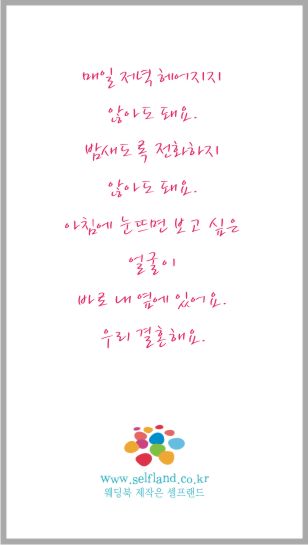 매일 저녁 헤어지지
않아도 돼요.
밤새도록 전화하지
않아도 돼요.
아침에 눈뜨면 보고 싶은
얼굴이
바로 내 옆에 있어요.
우리 결혼해요.
www.selfland.co.kr
웨딩북 제작은 셀프랜드